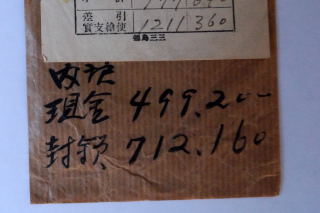 差引
實支給額 1211 360
内訳
現金 499.200
封鎖 712.160